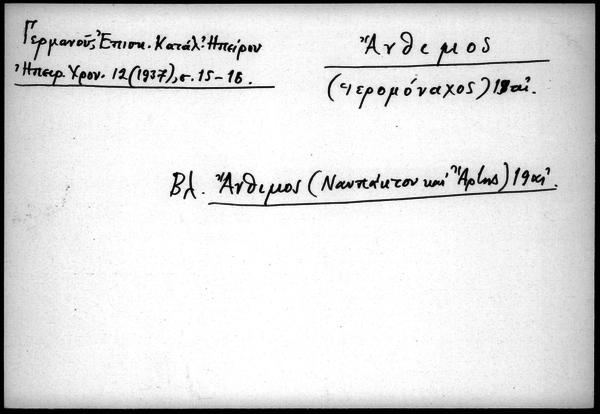 Γερμανοῦ, Ἐπισκ. Κατάλ. Ἠπείρου
Ἠπειρ. Χρον. 12 (1937), σ. 15-16.
Ἄνθιμος
(ἱερομόναχος) 19 αἰ.
Βλ. Ἄνθιμος (Ναυπάκτου καὶ Ἄρτης) 19 αἰ.